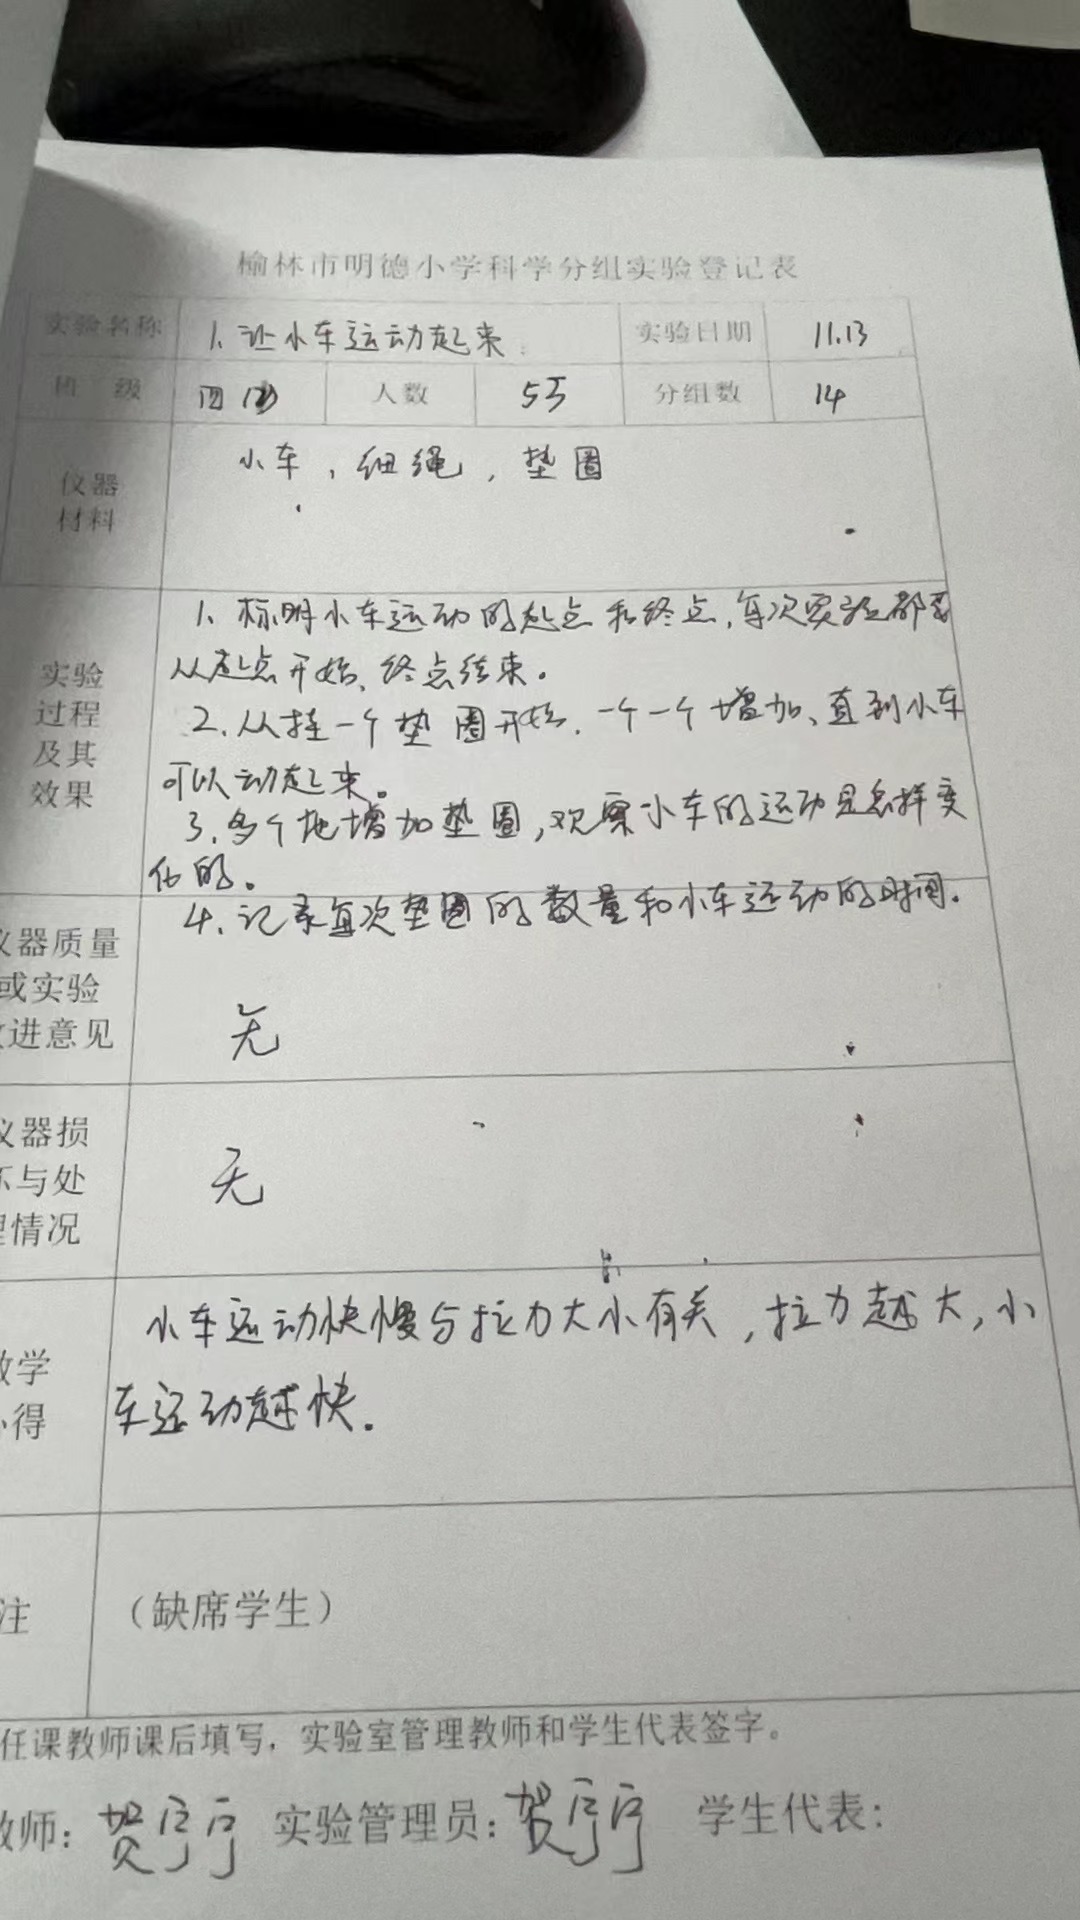 榆林市明德小学科学分组实验登记表
实验名称 1、让小车运动起来 实验日期 11.13
班 级 四 人数 55 分组数 14
仪器
材料
小车，细绳，垫圈
实验
过程
及其
效果
1、标明小车运动的起点和终点，每次实验都要
从起点开始、终点结束。
2、从挂一个垫圈开始，一个一个增加、直到小车
可以动起来。
3、多个地增加垫圈，观察小车的运动是怎样变
化的。
4、记录每次垫圈的数量和小车运动的时间。
仪器质量
或实验
改进意见
无
仪器损
坏与处
理情况
无
教学
心得
小车运动快慢与拉力大小有关，拉力越大，小
车运动越快.
注 （缺席学生）
任课教师课后填写，实验室管理教师和学生代表签字。
教师：贺 实验管理员：贺 学生代表：